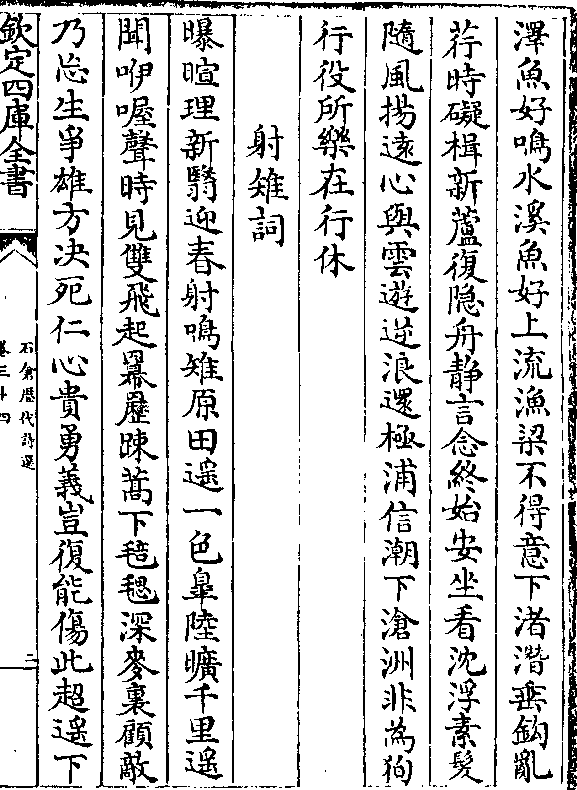 澤魚好鳴水溪魚好上流漁梁不得意下渚潛垂鈎亂
荇時礙楫新蘆復隠舟静言念終始安坐看沈浮素髮
隨風揚逺心與雲遊逆浪還極浦信潮下滄洲非為徇
行役所樂在行休
射雉詞
曝暄理新翳迎春射鳴雉原田遥一色臯陸曠千里遥
聞咿喔聲時見雙飛起羃䍥疎蒿下毰毸深麥裏顧敵
乃忘生爭雄方決死仁心貴勇義豈復能傷此超遥下
欽定四庫全書
石倉歴代詩選
卷三十四
二